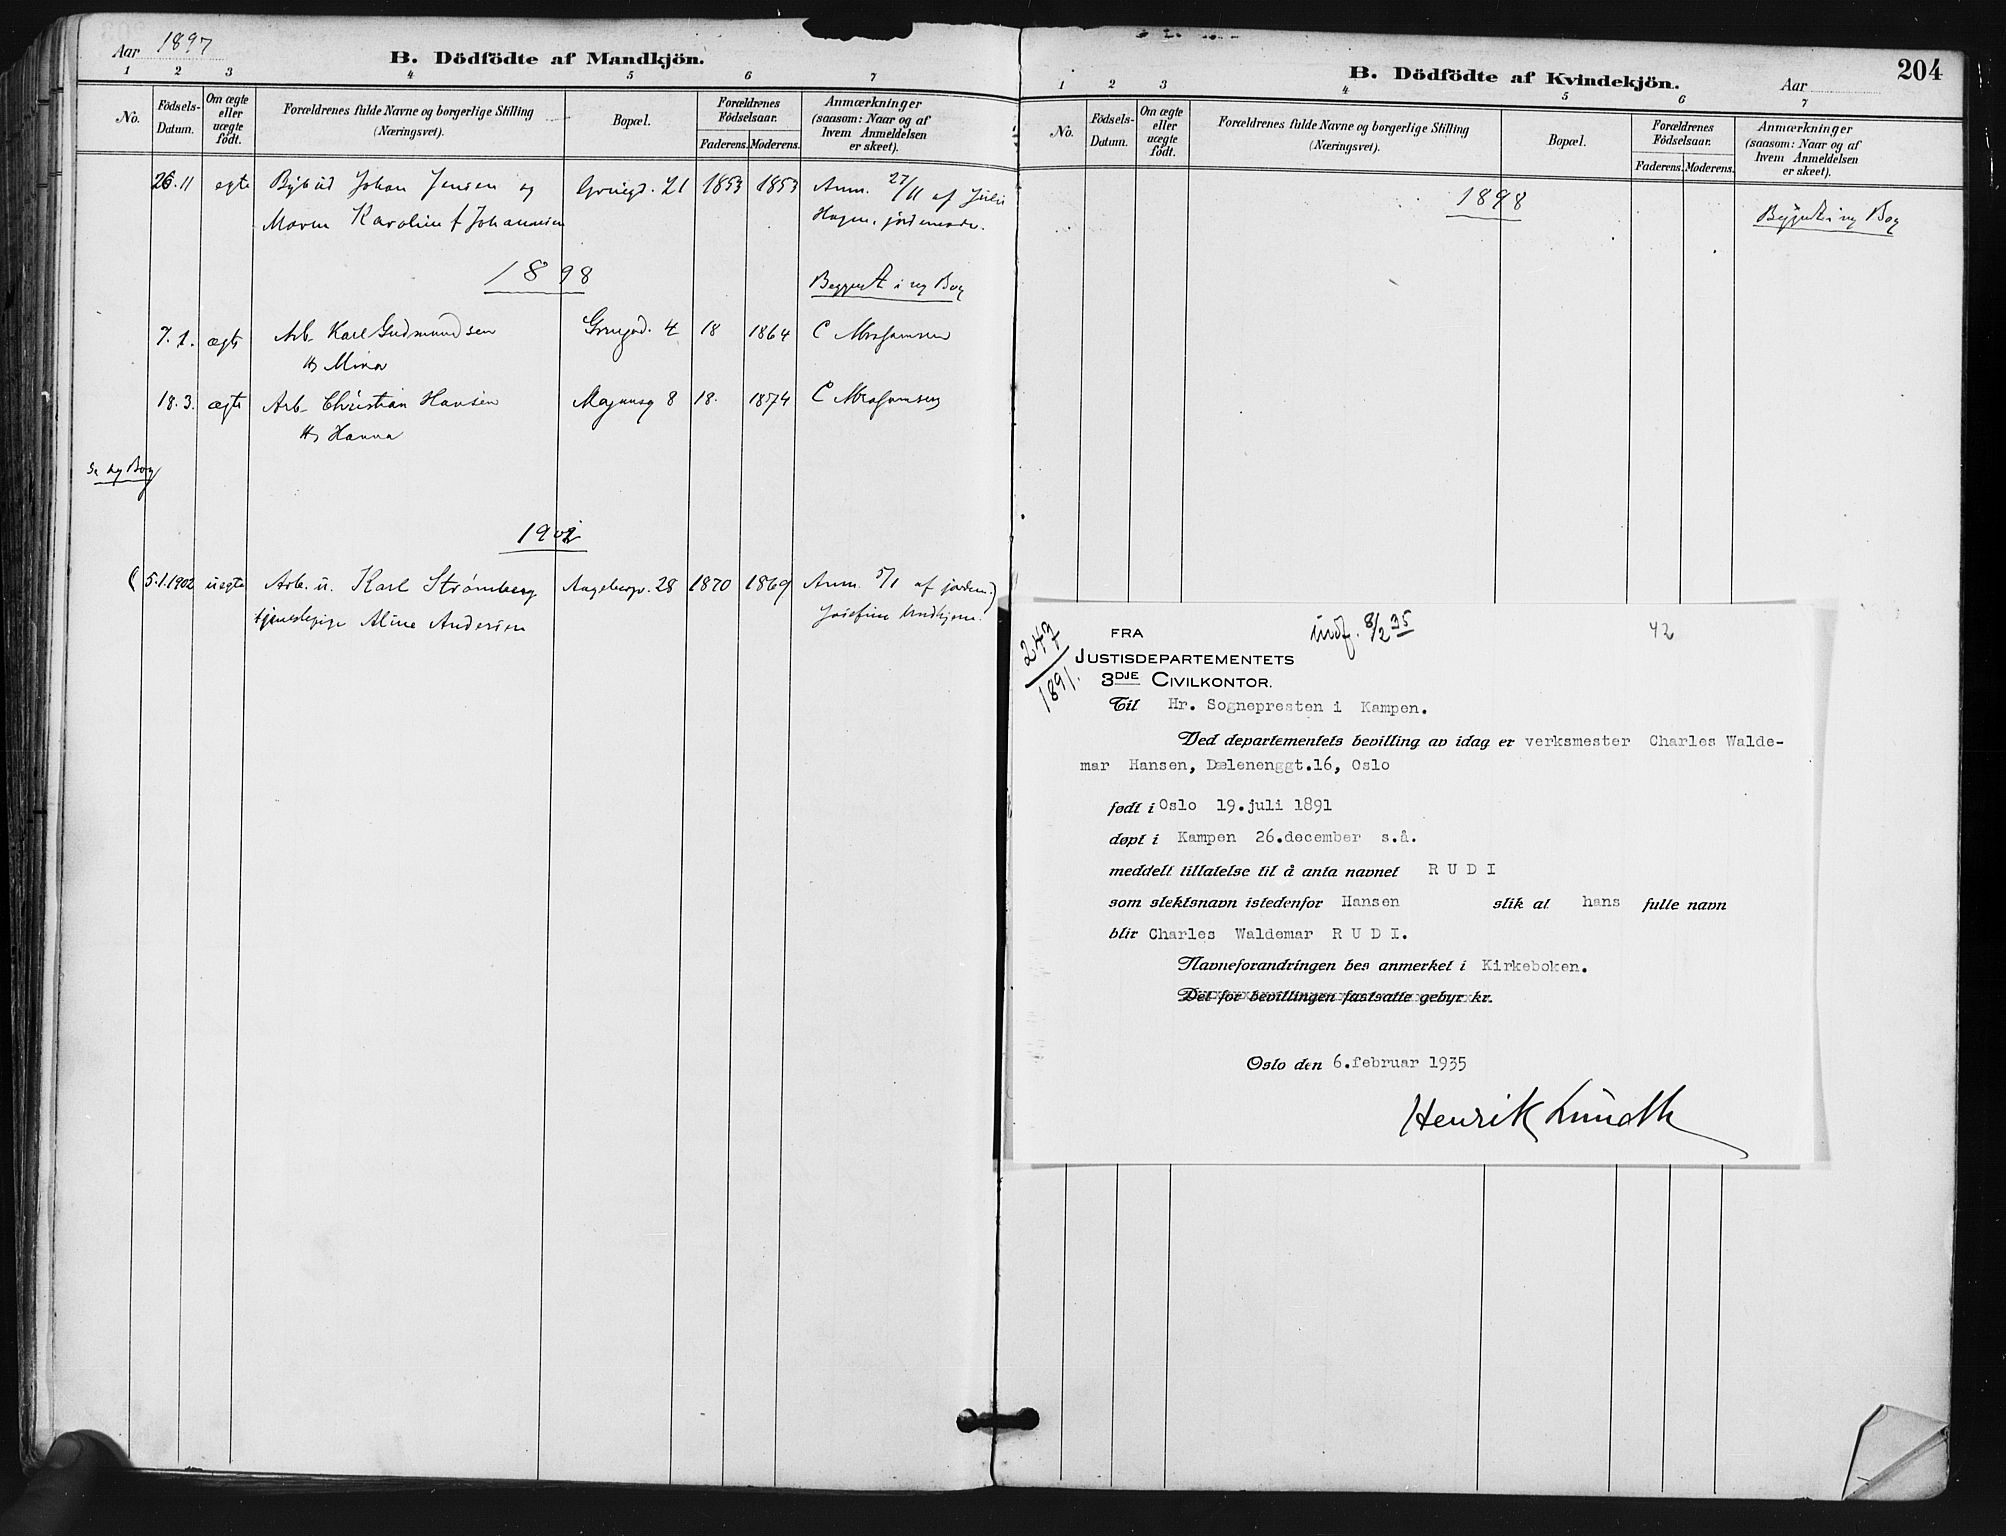 Aar 1897
B. Dödfödte af Mandkjön.
1 2 3 4 5 6 7
No.
Födsels-
Datum.
Om ægte
eller
uægte
födt.
Forældrenes fulde Navne og borgerlige Stilling
(Næringsvei).
Bopæl.
Forældrenes
Födselsaar.
Faderens. Moderens.
Anmærkninger
(saasom: Naar og af
hvem Anmeldelsen
er skeet).
26.11 egte Bybud Johan Jensen og 21 1853 1853 Anm. 27/11 af Julie
Maren Karoline f Johannesen Hagen, jordemoder.
1898
Begyndt i ny Bog
7.1. ægte Arb. Karl Gudmundsen 4 18 1864 C Abrahamsen
Hs Mina
18.3. ægte Arb. Christian Hansen 8 18. 1874 C Abrahamsen
Hs Hanna
Se ny Bog
1902
(5.1.1902 uegte Arb. u. Karl Strømberg Aagebergv. 28 1870 1869 Anm. 5/1 af jordem.)
tjenestepige Aline Andersen Josefine
204
B. Dödfödte af Kvindekjön.
Aar
1 2 3 4 5 6 7
No.
Födsels-
Datum.
Om ægte
eller
uægte
födt.
Forældrenes fulde Navne og borgerlige Stilling
(Næringsvei).
Bopæl.
Forældrenes
Födselsaar.
Faderens. Moderens.
Anmærkninger
(saasom: Naar og af
hvem Anmeldelsen
er skeet).
1898
Begyndt i ny Bog
247
1891.
indf. 8/2 35
42
FRA
JUSTISDEPARTEMENTETS
3DJE CIVILKONTOR.
Til Hr. Sognepresten i Kampen.
Ved departementets bevilling av idag er verksmester Charles Walde-
mar Hansen, Dælenenggt.16, Oslo
født i Oslo 19.juli 1891
døpt i Kampen 26.december s.å.
meddelt tillatelse til å anta navnet R U D I
som slektsnavn istedenfor Hansen slik at hans fulle navn
blir Charles Waldemar R U D I.
Navneforandringen bes anmerket i Kirkeboken.
Det for bevillingen fastsatte gebyr kr.
Oslo den 6.februar 1935
Henrik Lundh